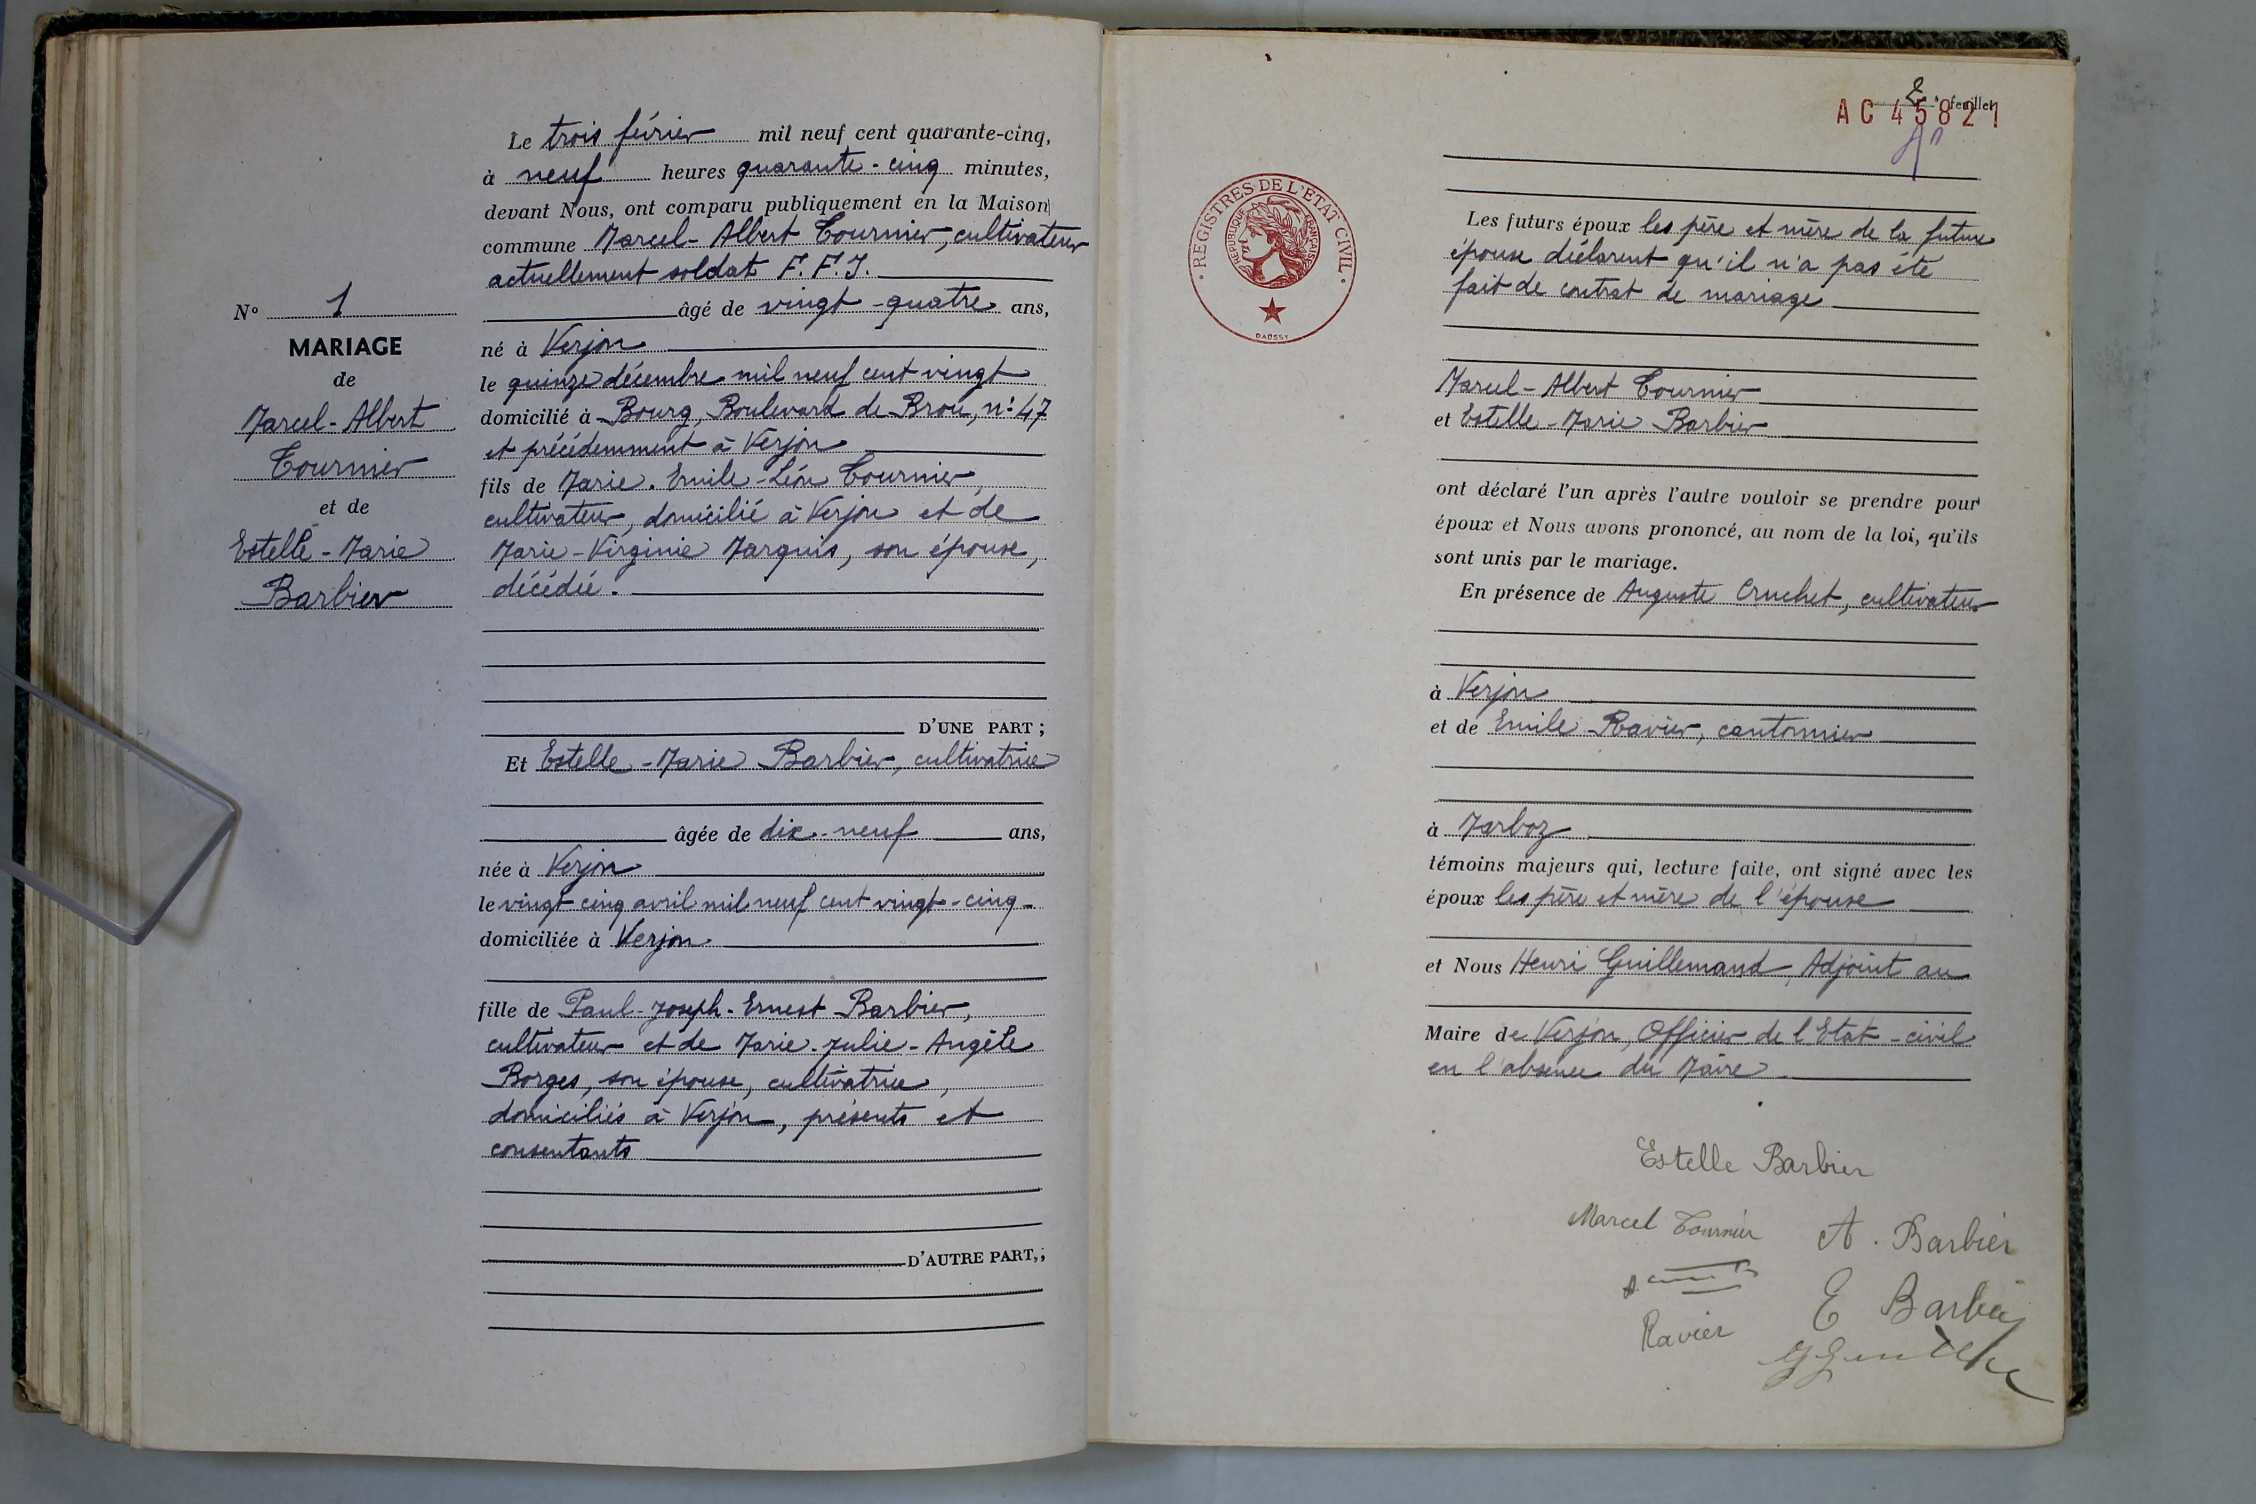 Le trois février mil neuf cent quarante-cinq,
à neuf heures quarante-cinq minutes,
devant Nous, ont comparu publiquement en la Maison
commune Marcel-Albert Tournier, cultivateur
actuellement soldat F.F.I.
âgé de vingt-quatre ans,
né à Verjon
le quinze décembre mil neuf cent vingt
domicilié à Bourg, Boulevard de Brou, n° 47
et précédemment à Verjon
fils de Marie-Emile-Léon Tournier,
cultivateur, domicilié à Verjon et de
Marie-Virginie Marquis, son épouse,
décédée.
D'UNE PART ;
Et Estelle-Marie Barbier, cultivatrice
âgée de dix-neuf ans,
née à Verjon
le vingt-cinq avril mil neuf cent vingt-cinq
domiciliée à Verjon
fille de Paul-Joseph-Ernest Barbier,
cultivateur et de Marie-Julie-Angèle
Borges, son épouse, cultivatrice,
domiciliés à Verjon, présents et
consentants
D'AUTRE PART,;
N° 1
MARIAGE
de
Marcel-Albert
Tournier
et de
Estelle-Marie
Barbier
2 e feuillet
AC 45821
REGISTRES DE L'ETAT CIVIL
REPUBLIQUE FRANÇAISE
DAUSSY
Les futurs époux les père et mère de la future
épouse déclarent qu'il n'a pas été
fait de contrat de mariage
Marcel-Albert Tournier
et Estelle-Marie Barbier
ont déclaré l'un après l'autre vouloir se prendre pour
époux et Nous avons prononcé, au nom de la loi, qu'ils
sont unis par le mariage.
En présence de Auguste Cruchet, cultivateur
à Verjon
et de Emile Ravier, cantonnier
à Marboz
témoins majeurs qui, lecture faite, ont signé avec les
époux les père et mère de l'épouse
et Nous Henri Guillemaud, Adjoint au
Maire de Verjon, Officier de l'Etat-civil
en l'absence du Maire
Estelle Barbier
Marcel Tournier
A. Barbier
E Barbier
Ravier